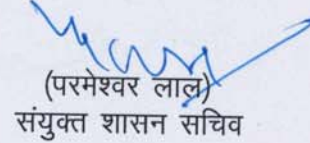 (परमेश्वर लाल)
संयुक्त शासन सचिव